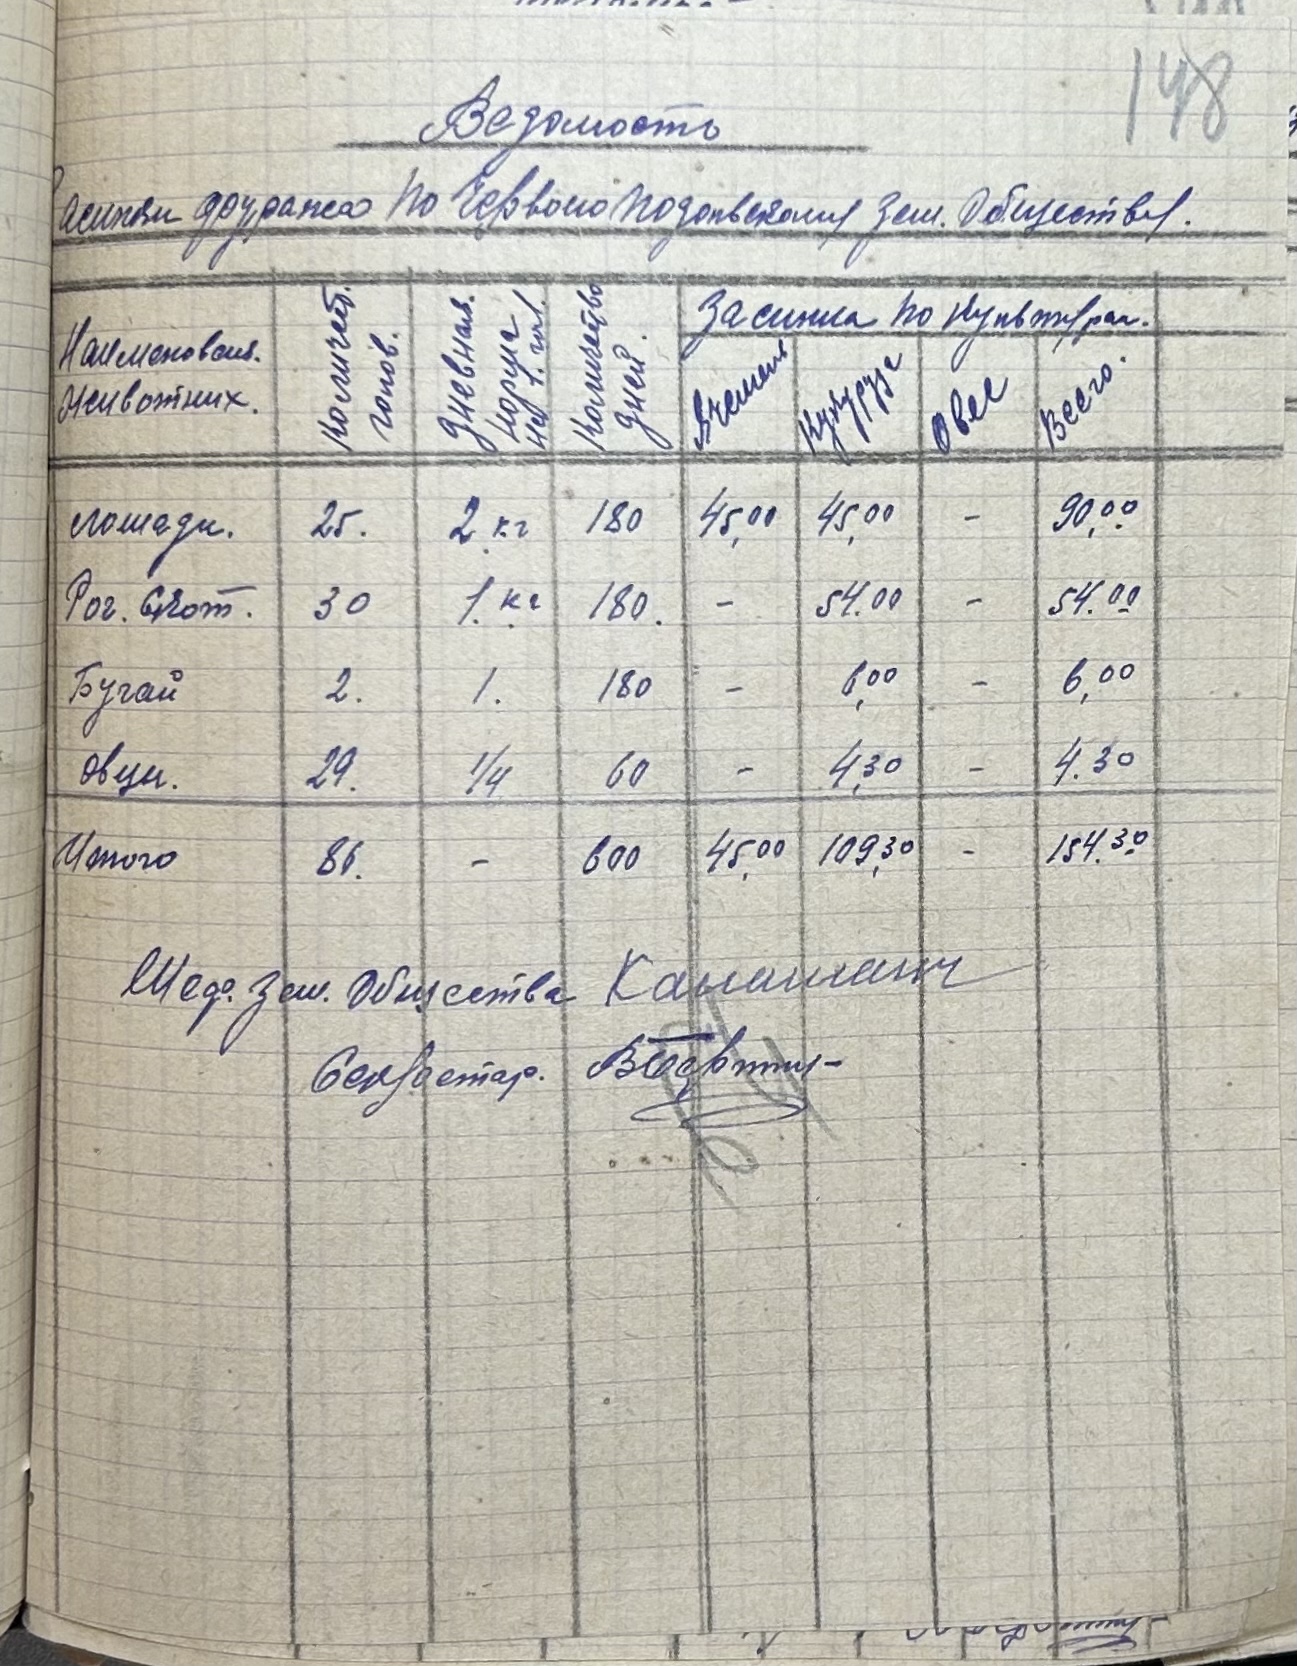 148
Ведомость
Засипки фуража по Червоно Подольскому Зем. Обществу.
Наименован. Животних. | Количест. голов. | Дневная. норма на 1. гол. | Количество дней. | Засипка по культурам.
Ячмень | Кукурудза | Овес | Всего.
Лошади. | 25. | 2 кг | 180 | 45,00 | 45,00 | - | 90,00
Рог. Скот. | 30 | 1. кг | 180. | - | 54.00 | - | 54.00
Бугай | 2. | 1. | 180 | - | 6,00 | - | 6,00
Овци. | 29. | 1/4 | 60 | - | 4,30 | - | 4.30
Итого | 86. | - | 600 | 45,00 | 109,30 | - | 154.30
Зем. Общества
Секретар.